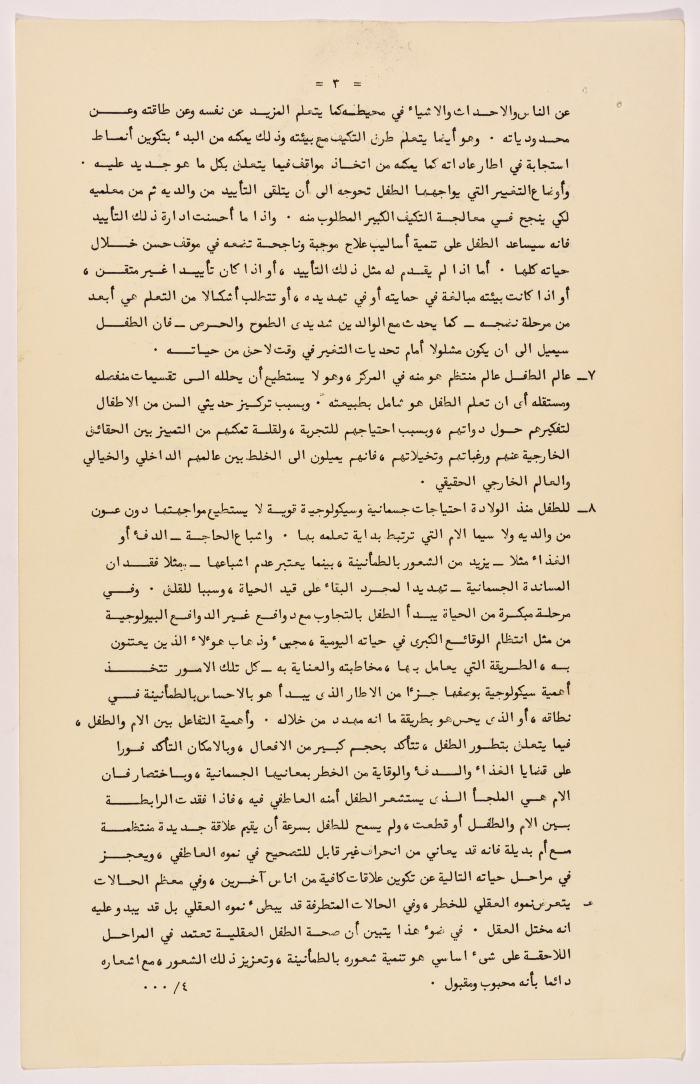 = ٣ =
عن الناس والاحداث والاشياء في محيطه كما يتعلم المزيد عن نفسه وعن طاقته وعن
محدودياته ٠ وهو أيضا يتعلم طرق التكيف مع بيئته وذلك يمكنه من البدء بتكوين أنماط
استجابة في اطار عاداته كما يمكنه من اتخاذ مواقف فيما يتعلق بكل ما هو جديد عليه ٠
وأوضاع التغيير التي يواجهها الطفل تحوجه الى أن يتلقى التأييد من والديه ثم من معلميه
لكي ينجح في معالجة التكيف الكبير المطلوب منه ٠ واذا ما أحسنت ادارة ذلك التأييد
فانه سيساعد الطفل على تنمية أساليب علاج موجبة وناجحة تضعه في موقف حسن خلال
حياته كلها ٠ أما اذا لم يقدم له مثل ذلك التأييد ، أو اذا كان تأييدا غير متقن ،
أو اذا كانت بيئته مبالغة في حمايته أو في تهديده ، أو تتطلب أشكالا من التعلم هي أبعد
من مرحلة نضجه ــ كما يحدث مع الوالدين شديدى الطموح والحرص ــ فان الطفل
سيميل الى ان يكون مشلولا أمام تحديات التغير في وقت لاحق من حياته ٠
٧ــ عالم الطفل عالم منتظم هو منه في المركز ، وهو لا يستطيع أن يحلله الى تقسيمات منفصله
ومستقله أى ان تعلم الطفل هو شامل بطبيعته ٠ وبسبب تركيز حديثي السن من الاطفال
لتفكيرهم حول ذواتهم ، وبسبب احتياجهم للتجربة ، ولقلة تمكنهم من التمييز بين الحقائق
الخارجية عنهم ورغباتهم وتخيلاتهم ، فانهم يميلون الى الخلط بين عالمهم الداخلي والخيالي
والعالم الخارجي الحقيقي ٠
٨ــ للطفل منذ الولادة احتياجات جسمانية وسيكولوجية قوية لا يستطيع مواجهتها دون عون
من والديه ولا سيما الام التي ترتبط بداية تعلمه بها ٠ واشباع الحاجة ــ الدفء أو
الغذاء مثلا ــ يزيد من الشعور بالطمأنينة ، بينما يعتبر عدم اشباعها ــ مثلا فقدان
المساندة الجسمانية ــ تهديدا لمجرد البقاء على قيد الحياة ، وسببا للقلق ٠ وفي
مرحلة مبكرة من الحياة يبدأ الطفل بالتجاوب مع دوافع غير الدوافع البيولوجية
من مثل انتظام الوقائع الكبرى في حياته اليومية ، مجيء وذهاب هؤلاء الذين يعتنون
به ، الطريقة التي يعامل بها ، مخاطبته والعناية به ــ كل تلك الامور تتخذ
أهمية سيكولوجية بوصفها جزءا من الاطار الذى يبدأ هو بالاحساس بالطمأنينة في
نطاقه ، أو الذى يحس هو بطريقة ما انه مهدد من خلاله ٠ وأهمية التفاعل بين الام والطفل ،
فيما يتعلق بتطور الطفل ، تتأكد بحجم كبير من الافعال ، وبالامكان التأكد فورا
على قضايا الغذاء والدفء والوقاية من الخطر بمعانيها الجسمانية ، وباختصار فان
الام هي الملجأ الذى يستشعر الطفل أمنه العاطفي فيه ، فاذا فقدت الرابطة
بين الام والطفل أو قطعت ، ولم يسمح للطفل بسرعة أن يقيم علاقة جديدة منتظمة
مع أم بديلة فانه قد يعاني من انحراف غير قابل للتصحيح في نموه العاطفي ، ويعجز
في مراحل حياته التالية عن تكوين علاقات كافية من اناس آخرين ، وفي معظم الحالات
يتعرض نموه العقلي للخطر ، وفي الحالات المتطرفة قد يبطىء نموه العقلي بل قد يبدو عليه
انه مختل العقل ٠ في ضوء هذا يتبين أن صحة الطفل العقلية تعتمد في المراحل
اللاحقة على شيء اساسي هو تنمية شعوره بالطمأنينة ، وتعزيز ذلك الشعور ، مع اشعاره
دائما بأنه محبوب ومقبول ٠
٤/ ٠٠٠